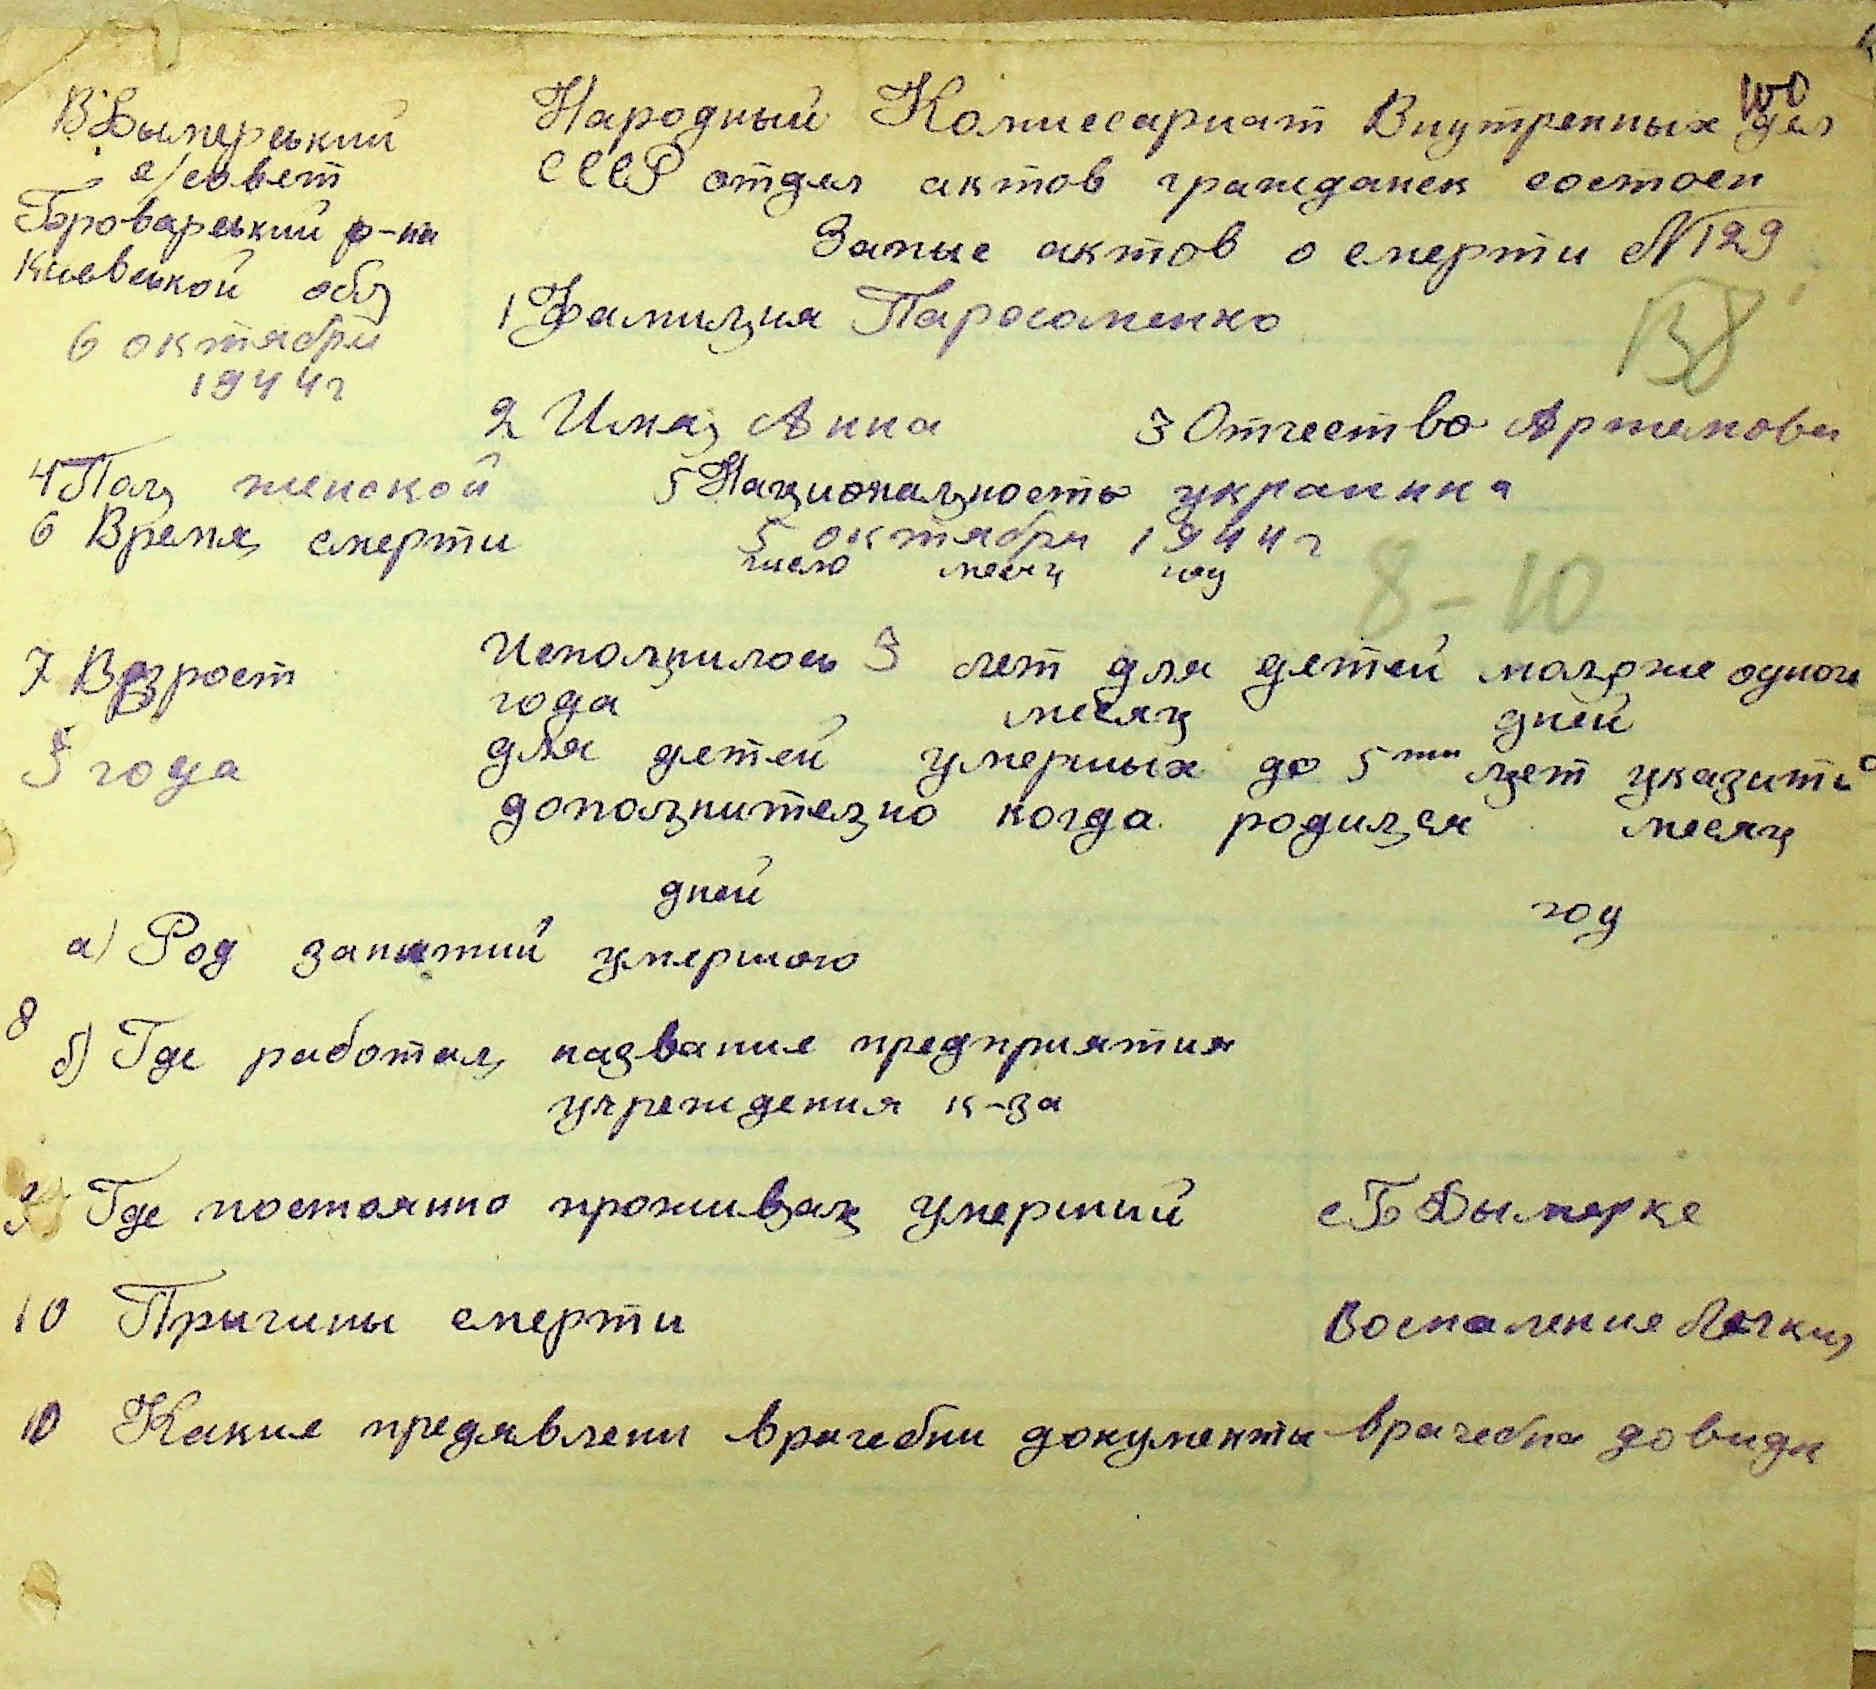 В Дымерський
с/совет
Броварський р-на
Киевськой обл
6 октября
1944г
100
Народный Комиссариат Внутренных дел
СССР отдел актов гражданск состоен
Запис актов о смерти №129
1 Фамилия Паросоменко
138
2 Имя Анна 3 Отчество Артемовн
4 Пол женской 5 Национальность украинка
6 Время смерти 5 октября 1944г
число месяц год
8-10
7 Возрост Исполнилось 3 лет для детей моложе одного
года месяц дней
3 года для детей умерших до 5ти лет указить
дополнительно когда родился месяц
дней год
а) Род занятий умершого
8
б) Где работал название предприятия
учреждения к-за
9 Где постоянно проживал умерший с Б Дымерке
10 Причины смерти Воспаление Легких
10 Какие предявлени врачебни документы врачебна довидк